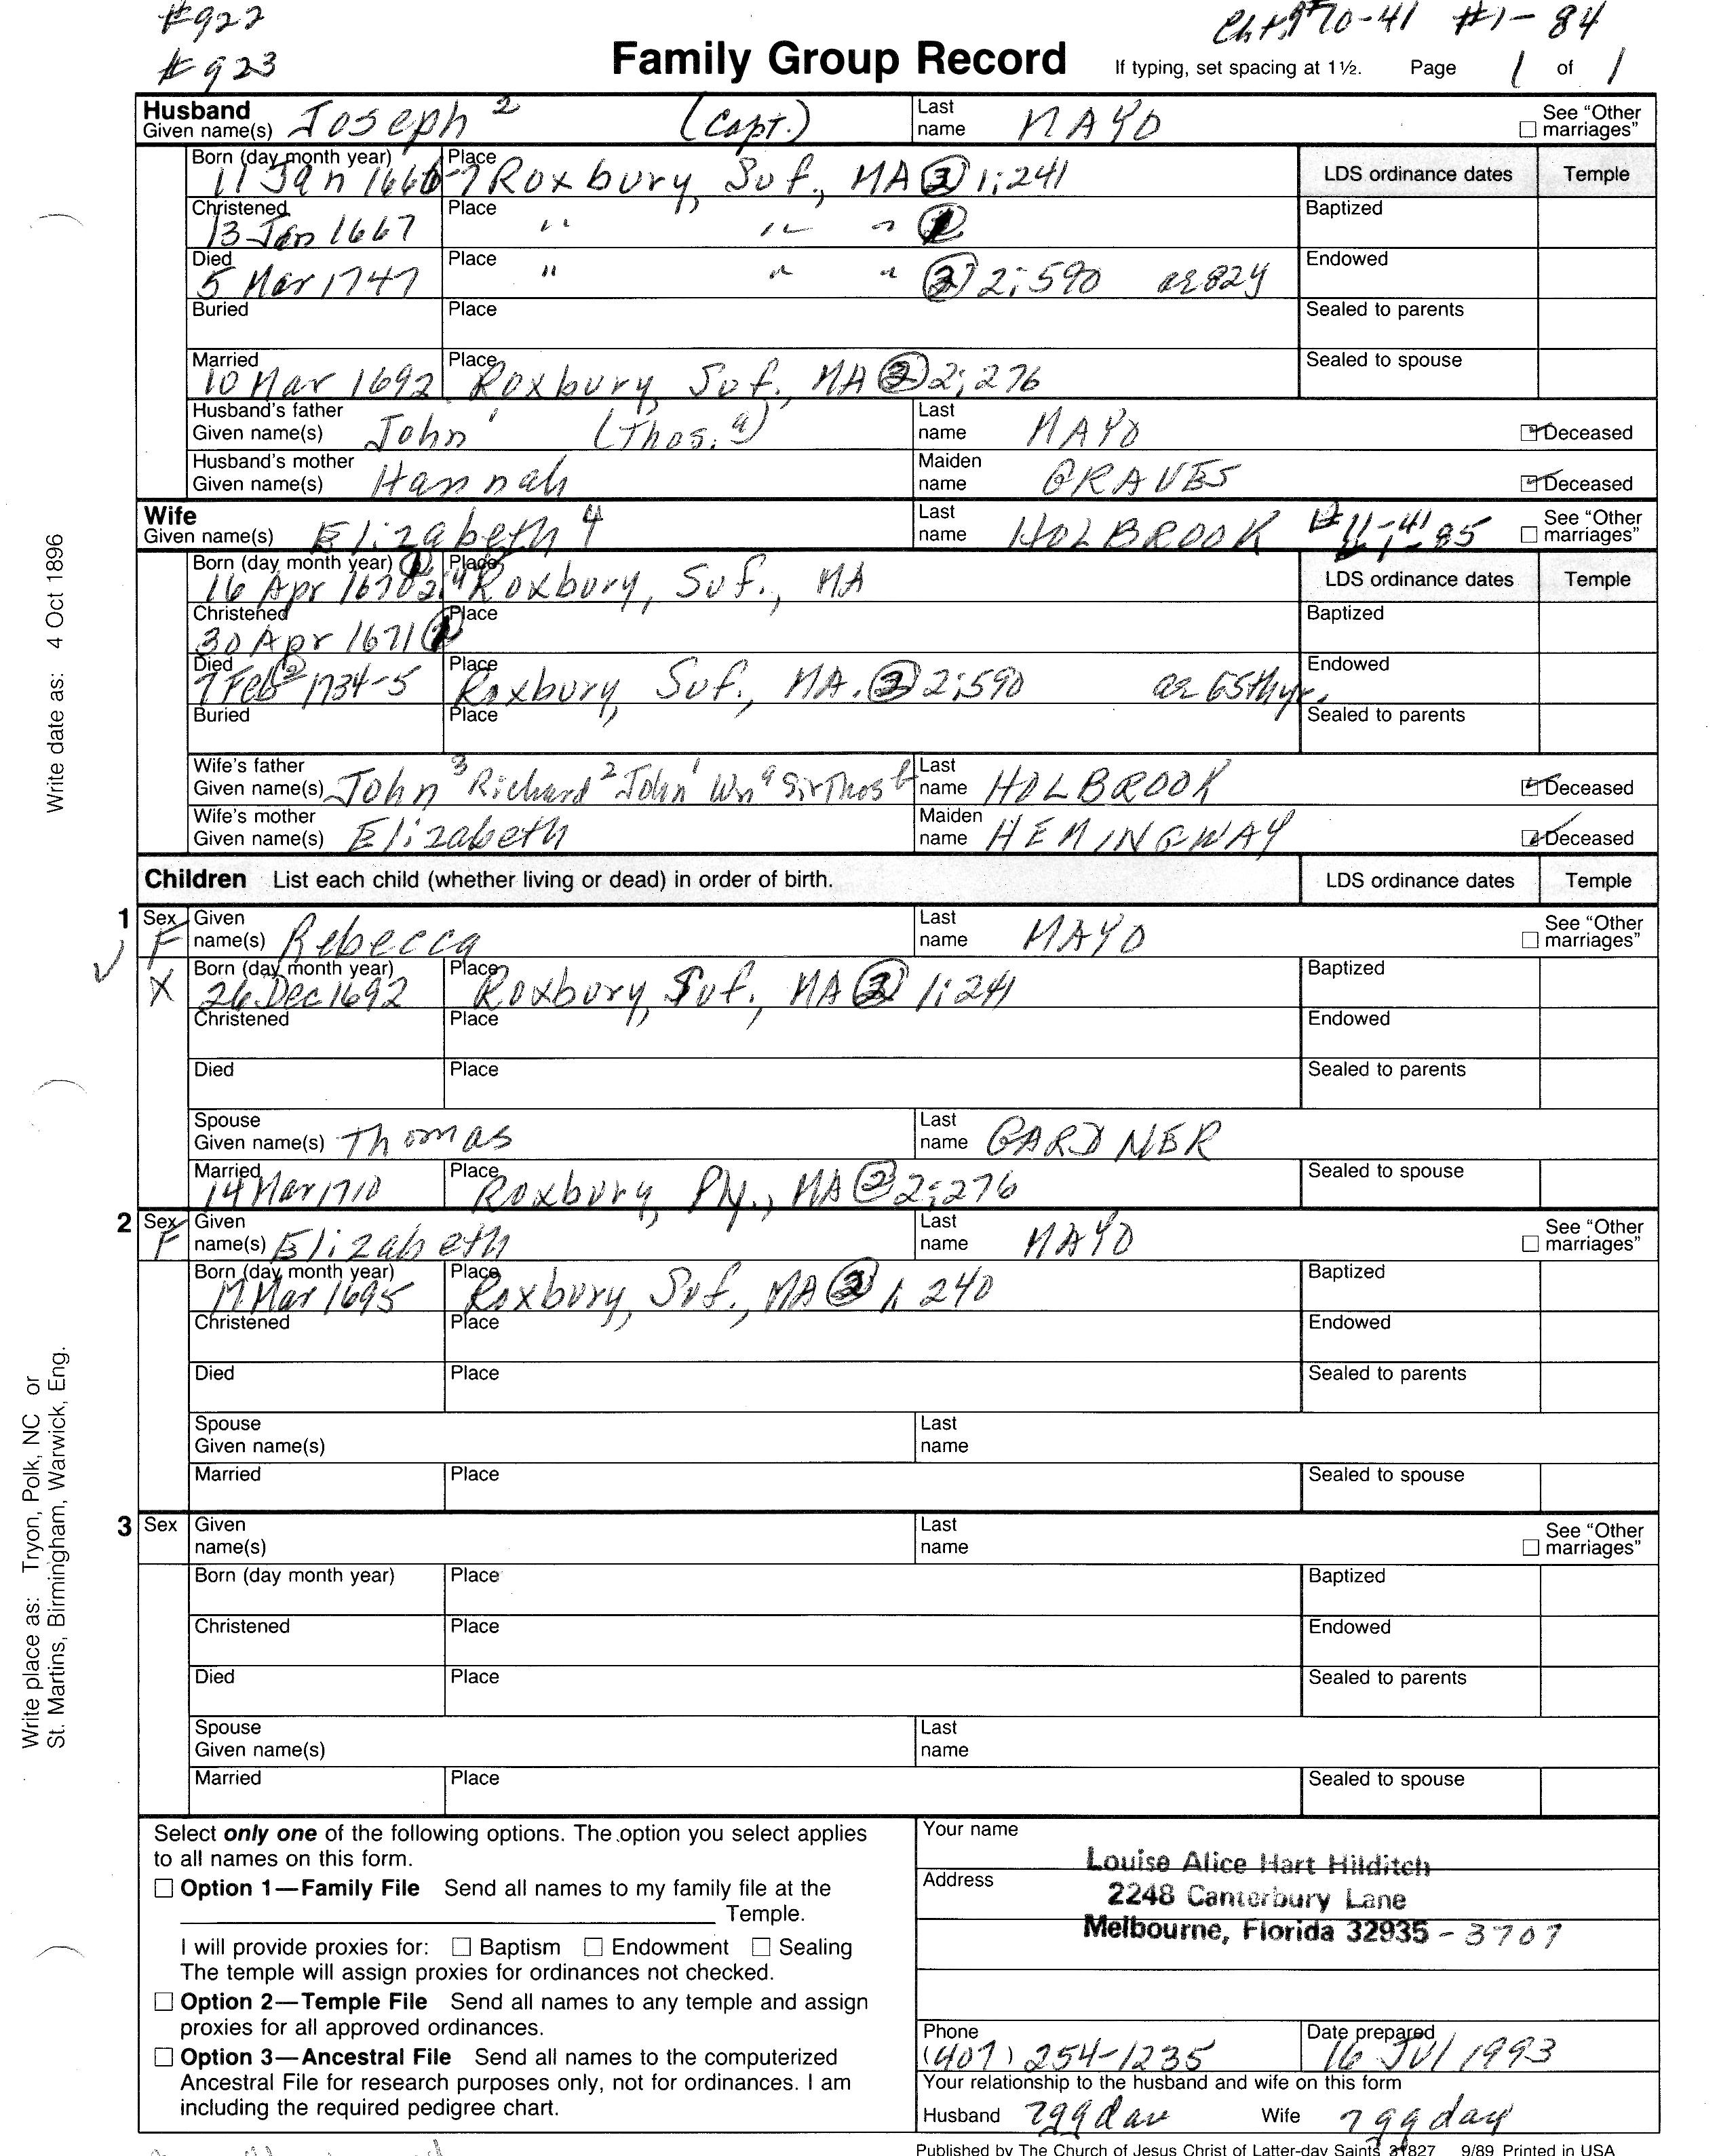 #922
#923
Cht.#70-41 #1-84
Family Group Record If typing, set spacing at 1½. Page 1 of 1
Husband
Given name(s) Joseph 2 (Capt.) Last name MAYO See "Other marriages"
Born (day month year) 11 Jan 1666-7 Place Roxbury, Suf., MA ② 1;241 LDS ordinance dates Temple
Christened 13 Jan 1667 Place " " " ① Baptized
Died 5 Mar 1747 Place " " " ② 2;590 ae 82y Endowed
Buried Place Sealed to parents
Married 10 Mar 1692 Place Roxbury, Suf., MA ② 2;276 Sealed to spouse
Husband's father
Given name(s) John 1 (Thos. a) Last name MAYO Deceased
Husband's mother
Given name(s) Hannah Maiden name GRAVES Deceased
Wife
Given name(s) Elizabeth 4 Last name HOLBROOK See "Other marriages"
Born (day month year) 16 Apr Place Roxbury, Suf., MA LDS ordinance dates Temple
Christened 30 Apr 1671 Place Baptized
Died 7 Feb 1734-5 Place Roxbury, Suf., MA. ② 2;590 ae 65th yr. Endowed
Buried Place Sealed to parents
Wife's father
Given name(s) John 3 Richard 2 John 1 Wm a Sir Thos b Last name HOLBROOK Deceased
Wife's mother
Given name(s) Elizabeth Maiden name HEMINGWAY Deceased
Children List each child (whether living or dead) in order of birth. LDS ordinance dates Temple
1 Sex F Given name(s) Rebecca Last name MAYO See "Other marriages"
X Born (day month year) 26 Dec 1692 Place Roxbury, Suf., MA ② 1;241 Baptized
Christened Place Endowed
Died Place Sealed to parents
Spouse
Given name(s) Thomas Last name GARDNER
Married 14 Mar 1710 Place Roxbury, Ply., MA ② 2;276 Sealed to spouse
2 Sex F Given name(s) Elizabeth Last name MAYO See "Other marriages"
Born (day month year) Mar 1695 Place Roxbury, Suf., MA ② 1;240 Baptized
Christened Place Endowed
Died Place Sealed to parents
Spouse
Given name(s) Last name
Married Place Sealed to spouse
3 Sex Given name(s) Last name See "Other marriages"
Born (day month year) Place Baptized
Christened Place Endowed
Died Place Sealed to parents
Spouse
Given name(s) Last name
Married Place Sealed to spouse
Write date as: 4 Oct 1896
Write place as: Tryon, Polk, NC or
St. Martins, Birmingham, Warwick, Eng.
Select only one of the following options. The option you select applies
to all names on this form.
Option 1—Family File Send all names to my family file at the
Temple.
I will provide proxies for: Baptism Endowment Sealing
The temple will assign proxies for ordinances not checked.
Option 2—Temple File Send all names to any temple and assign
proxies for all approved ordinances.
Option 3—Ancestral File Send all names to the computerized
Ancestral File for research purposes only, not for ordinances. I am
including the required pedigree chart.
Your name
Louise Alice Hart Hilditch
Address
2248 Canterbury Lane
Melbourne, Florida 32935 - 3707
Phone (407) 254-1235 Date prepared 16 Jul 1993
Your relationship to the husband and wife on this form
Husband 7ggdau Wife 7ggdau
Published by The Church of Jesus Christ of Latter-day Saints 31827 9/89 Printed in USA